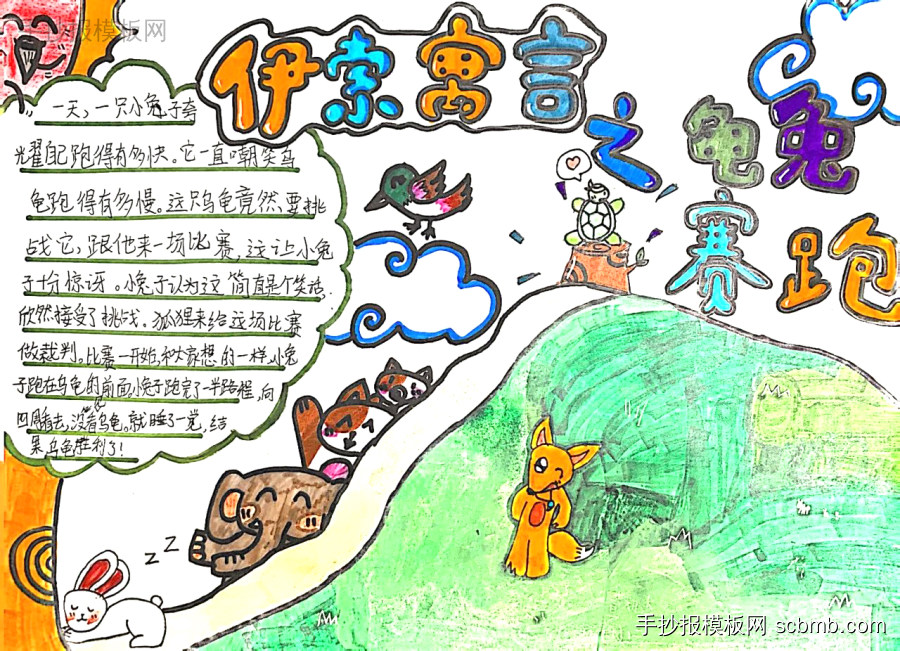 手抄报模板网
伊索寓言
之龟兔
赛跑
一天，一只小兔子夸
耀自己跑得有多快。它一直嘲笑乌
龟跑得有多慢。这只乌龟竟然要挑
战它，跟他来一场比赛，这让小兔
子十分惊讶。小兔子认为这简直是个笑话，
欣然接受了挑战。狐狸来给这场比赛
做裁判。比赛一开始，和大家想的一样，小兔
子跑在乌龟的前面，小兔子跑完了一半路程，向
四周看去，没看见乌龟。就睡了一觉，结
果乌龟胜利了！
z z Z
手抄报模板网 scbmb.com